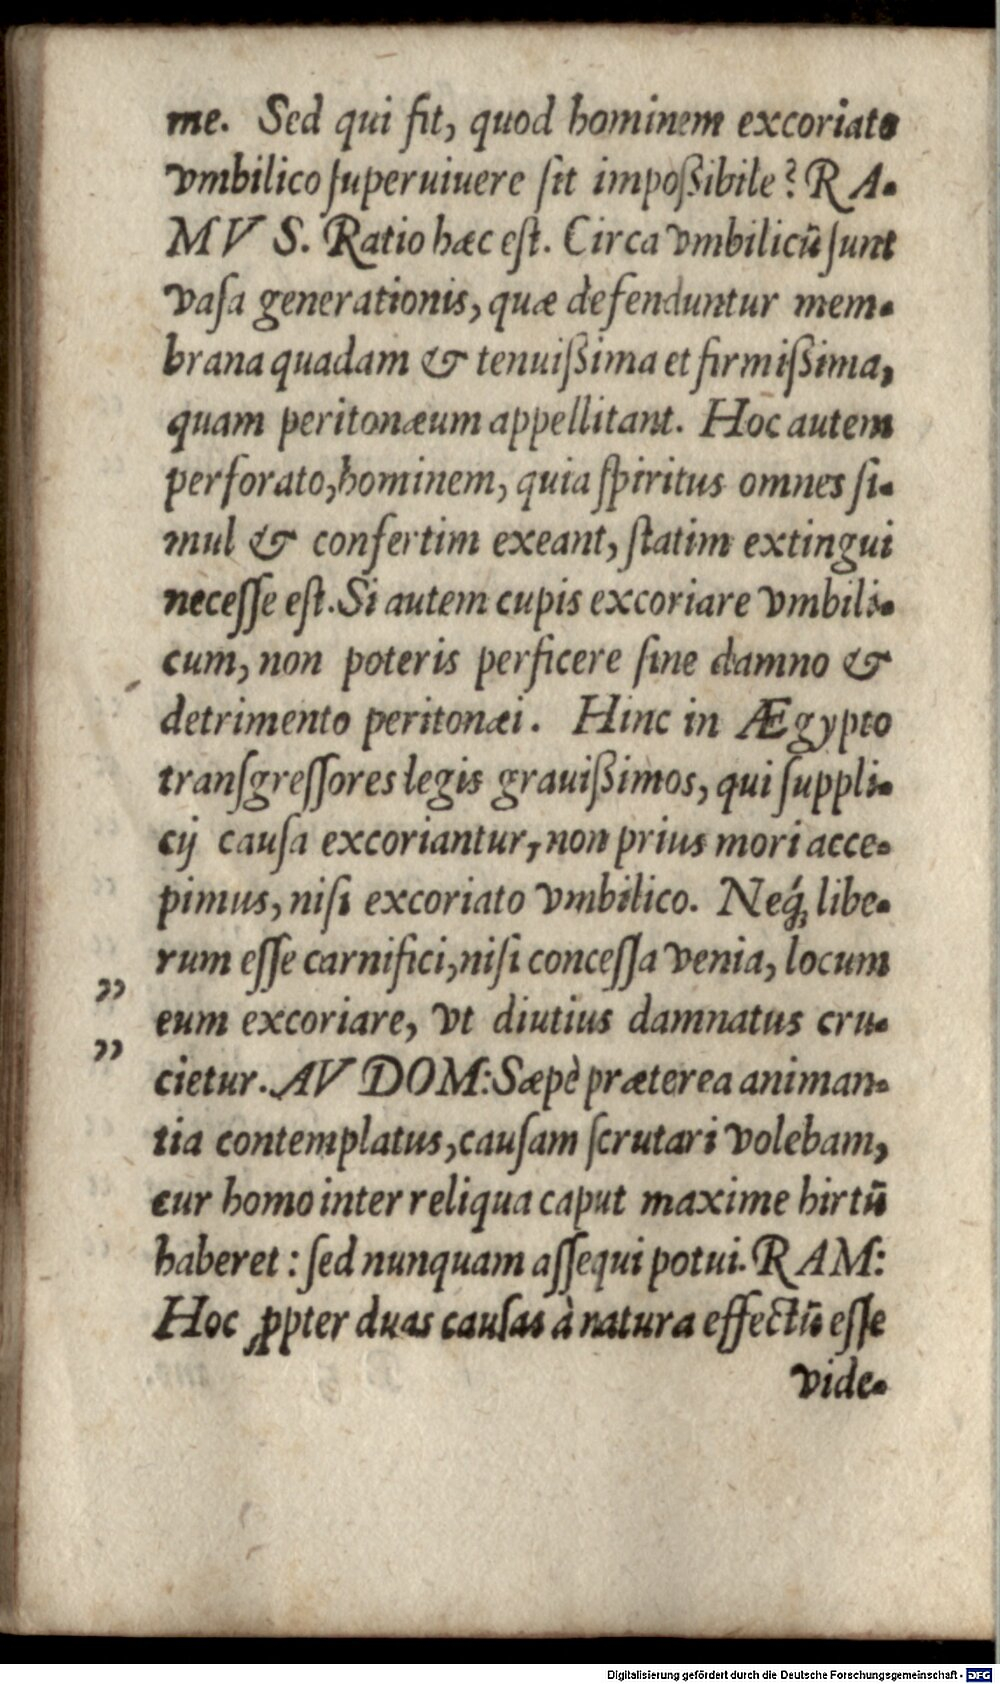 me. Sed qui fit, quod hominem excoriato
vmbilico ſuperuiuere ſit impoßibile? RA-
MVS. Ratio hæc eſt. Circa vmbilicũ ſunt
vaſa generationis, quæ defenduntur mem-
brana quadam & tenuißima et firmißima,
quam peritonæum appellitant. Hoc autem
perforato, hominem, quia ſpiritus omnes ſi-
mul & confertim exeant, ſtatim extingui
neceſſe eſt. Si autem cupis excoriare vmbili-
cum, non poteris perficere ſine damno &
detrimento peritonæi. Hinc in Ægypto
tranſgreſſores legis grauißimos, qui ſuppli-
cij cauſa excoriantur, non prius mori acce-
pimus, niſi excoriato vmbilico. Neq́; libe-
rum eſſe carnifici, niſi conceſſa venia, locum
„ eum excoriare, vt diutius damnatus cru-
„ cietur. AVDOM: Sæpè præterea animan-
tia contemplatus, cauſam ſcrutari volebam,
cur homo inter reliqua caput maxime hirtũ
haberet: ſed nunquam aſſequi potui. RAM:
Hoc ꝓpter duas cauſas à natura effectũ eſſe
vide-
Digitalisierung gefördert durch die Deutsche Forschungsgemeinschaft - DFG